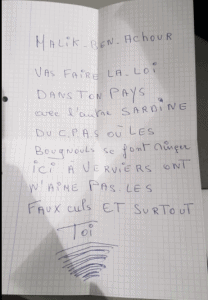 MALIK.BEN.ACHOUR
VAS FAIRE LA LOI
DANS TON PAYS
avec L'autre SARDINE
DU C.P.A.S OÙ LES
Bougnouls se font
ici À VERVIERS ONT
N'AIME PAS LES
FAUX CULS ET SURTOUT
Toi